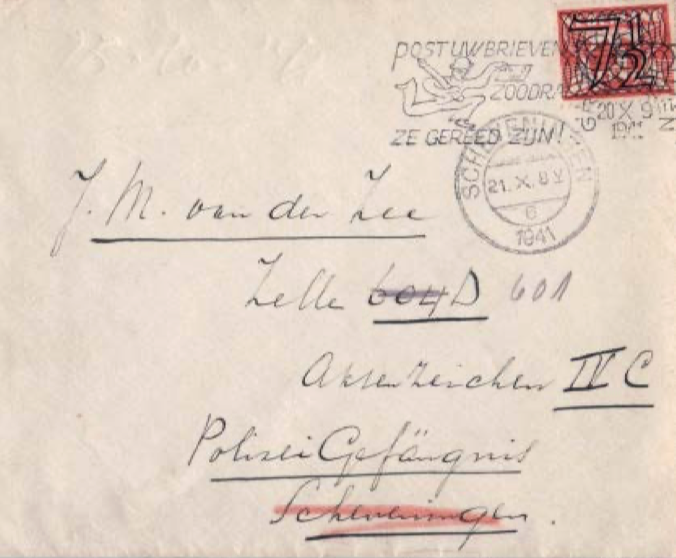 POST UW BRIEVEN
ZOODRA
ZE GEREED ZIJN!
7½
20 X 9
1941
SCHEVENINGEN
21.X.8V
1941
J. M. van der Zee
Zelle 604 D 601
Aktenzeichen IV C
Polizei Gefängnis
Scheveningen.